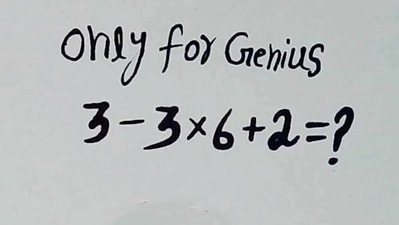 Only for Genius
3-3×6+2=?